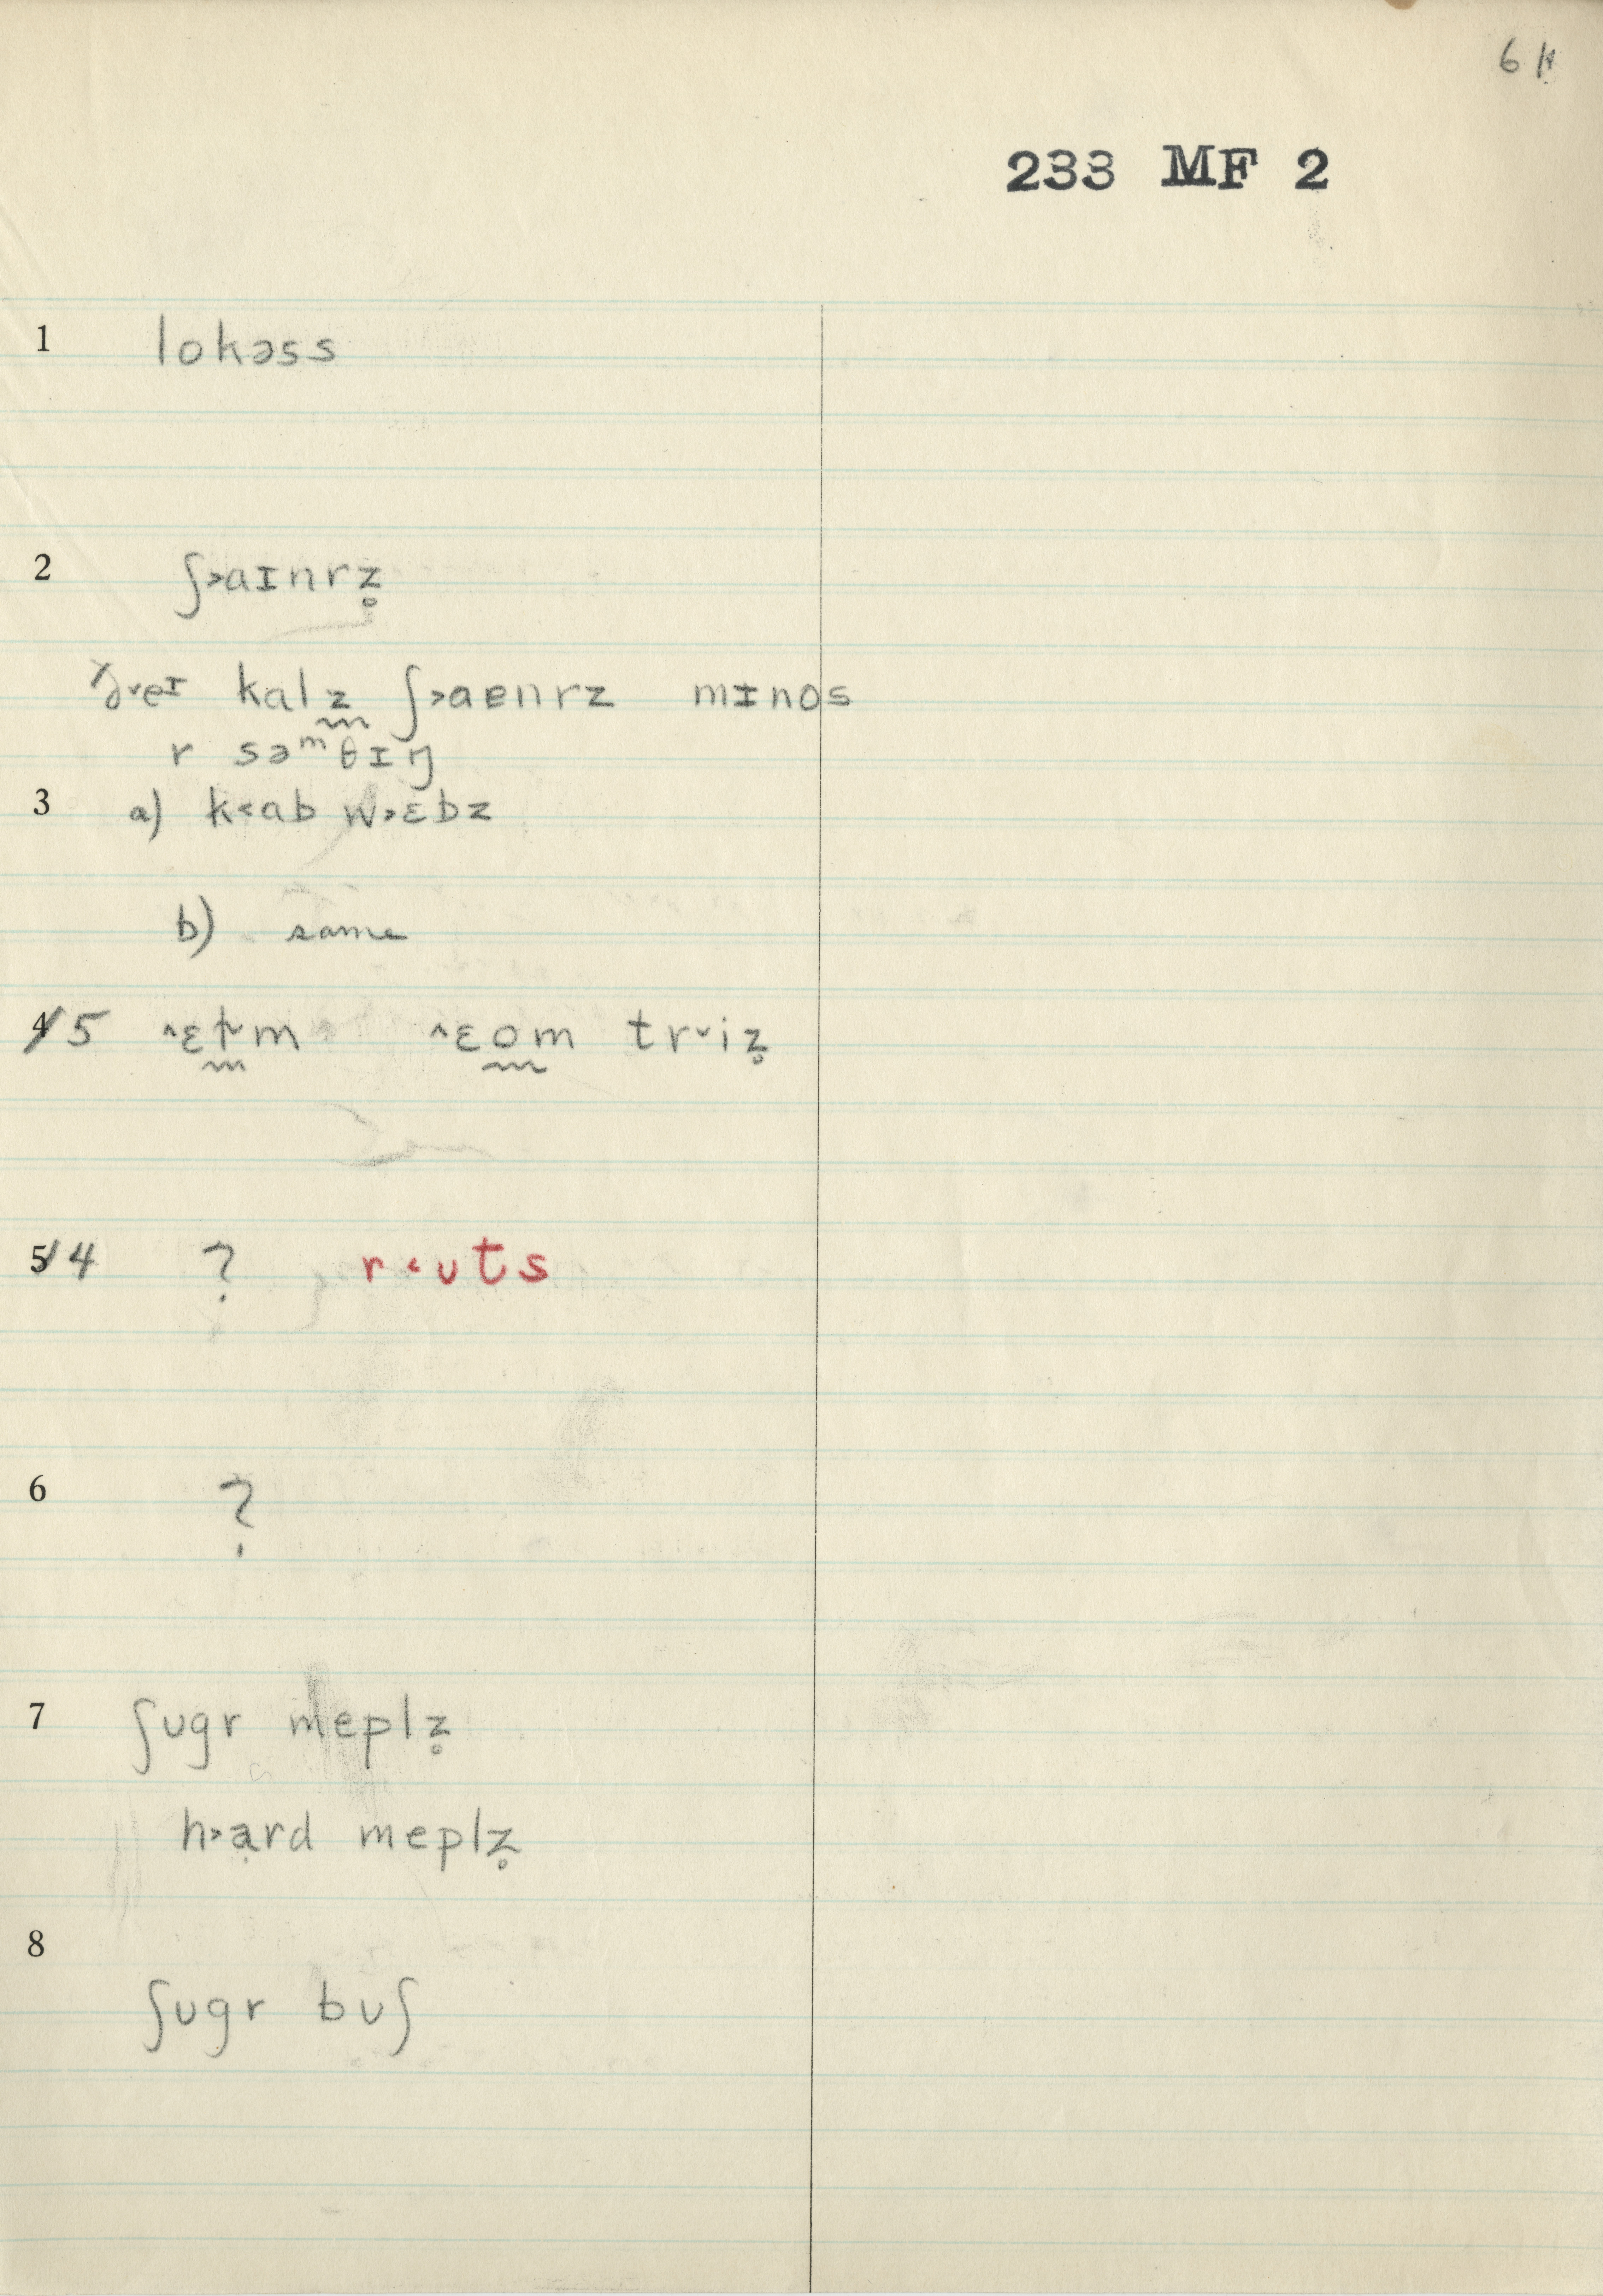 233 MF 2
1 lokəss
2 ʃ˃aɪnrz̥
ð˅eɪ kalz̰ ʃ˃aᴇnrz mɪnos
r səᵐθɪŋ
3 a) k˂ab w˃ɛbz
b) same
5 ^ɛm ^ɛom tr˅iz̥
4 ? r˂ᴜts
6 ?
7 ʃᴜgr meplz̥
h˃ạrd meplz̥
8
ʃᴜgr bᴜʃ